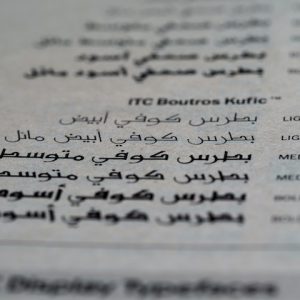 بطرس صحفي أسود
بطرس صحفي أسود مائل
ITC Boutros Kufic™
بطرس كوفي أبيض LIG
بطرس كوفي أبيض مائل LIG
بطرس كوفي متوسط MED
بطرس كوفي متوسط MED
بطرس كوفي أسود BOL
بطرس كوفي أسود BOL
Display Typefaces